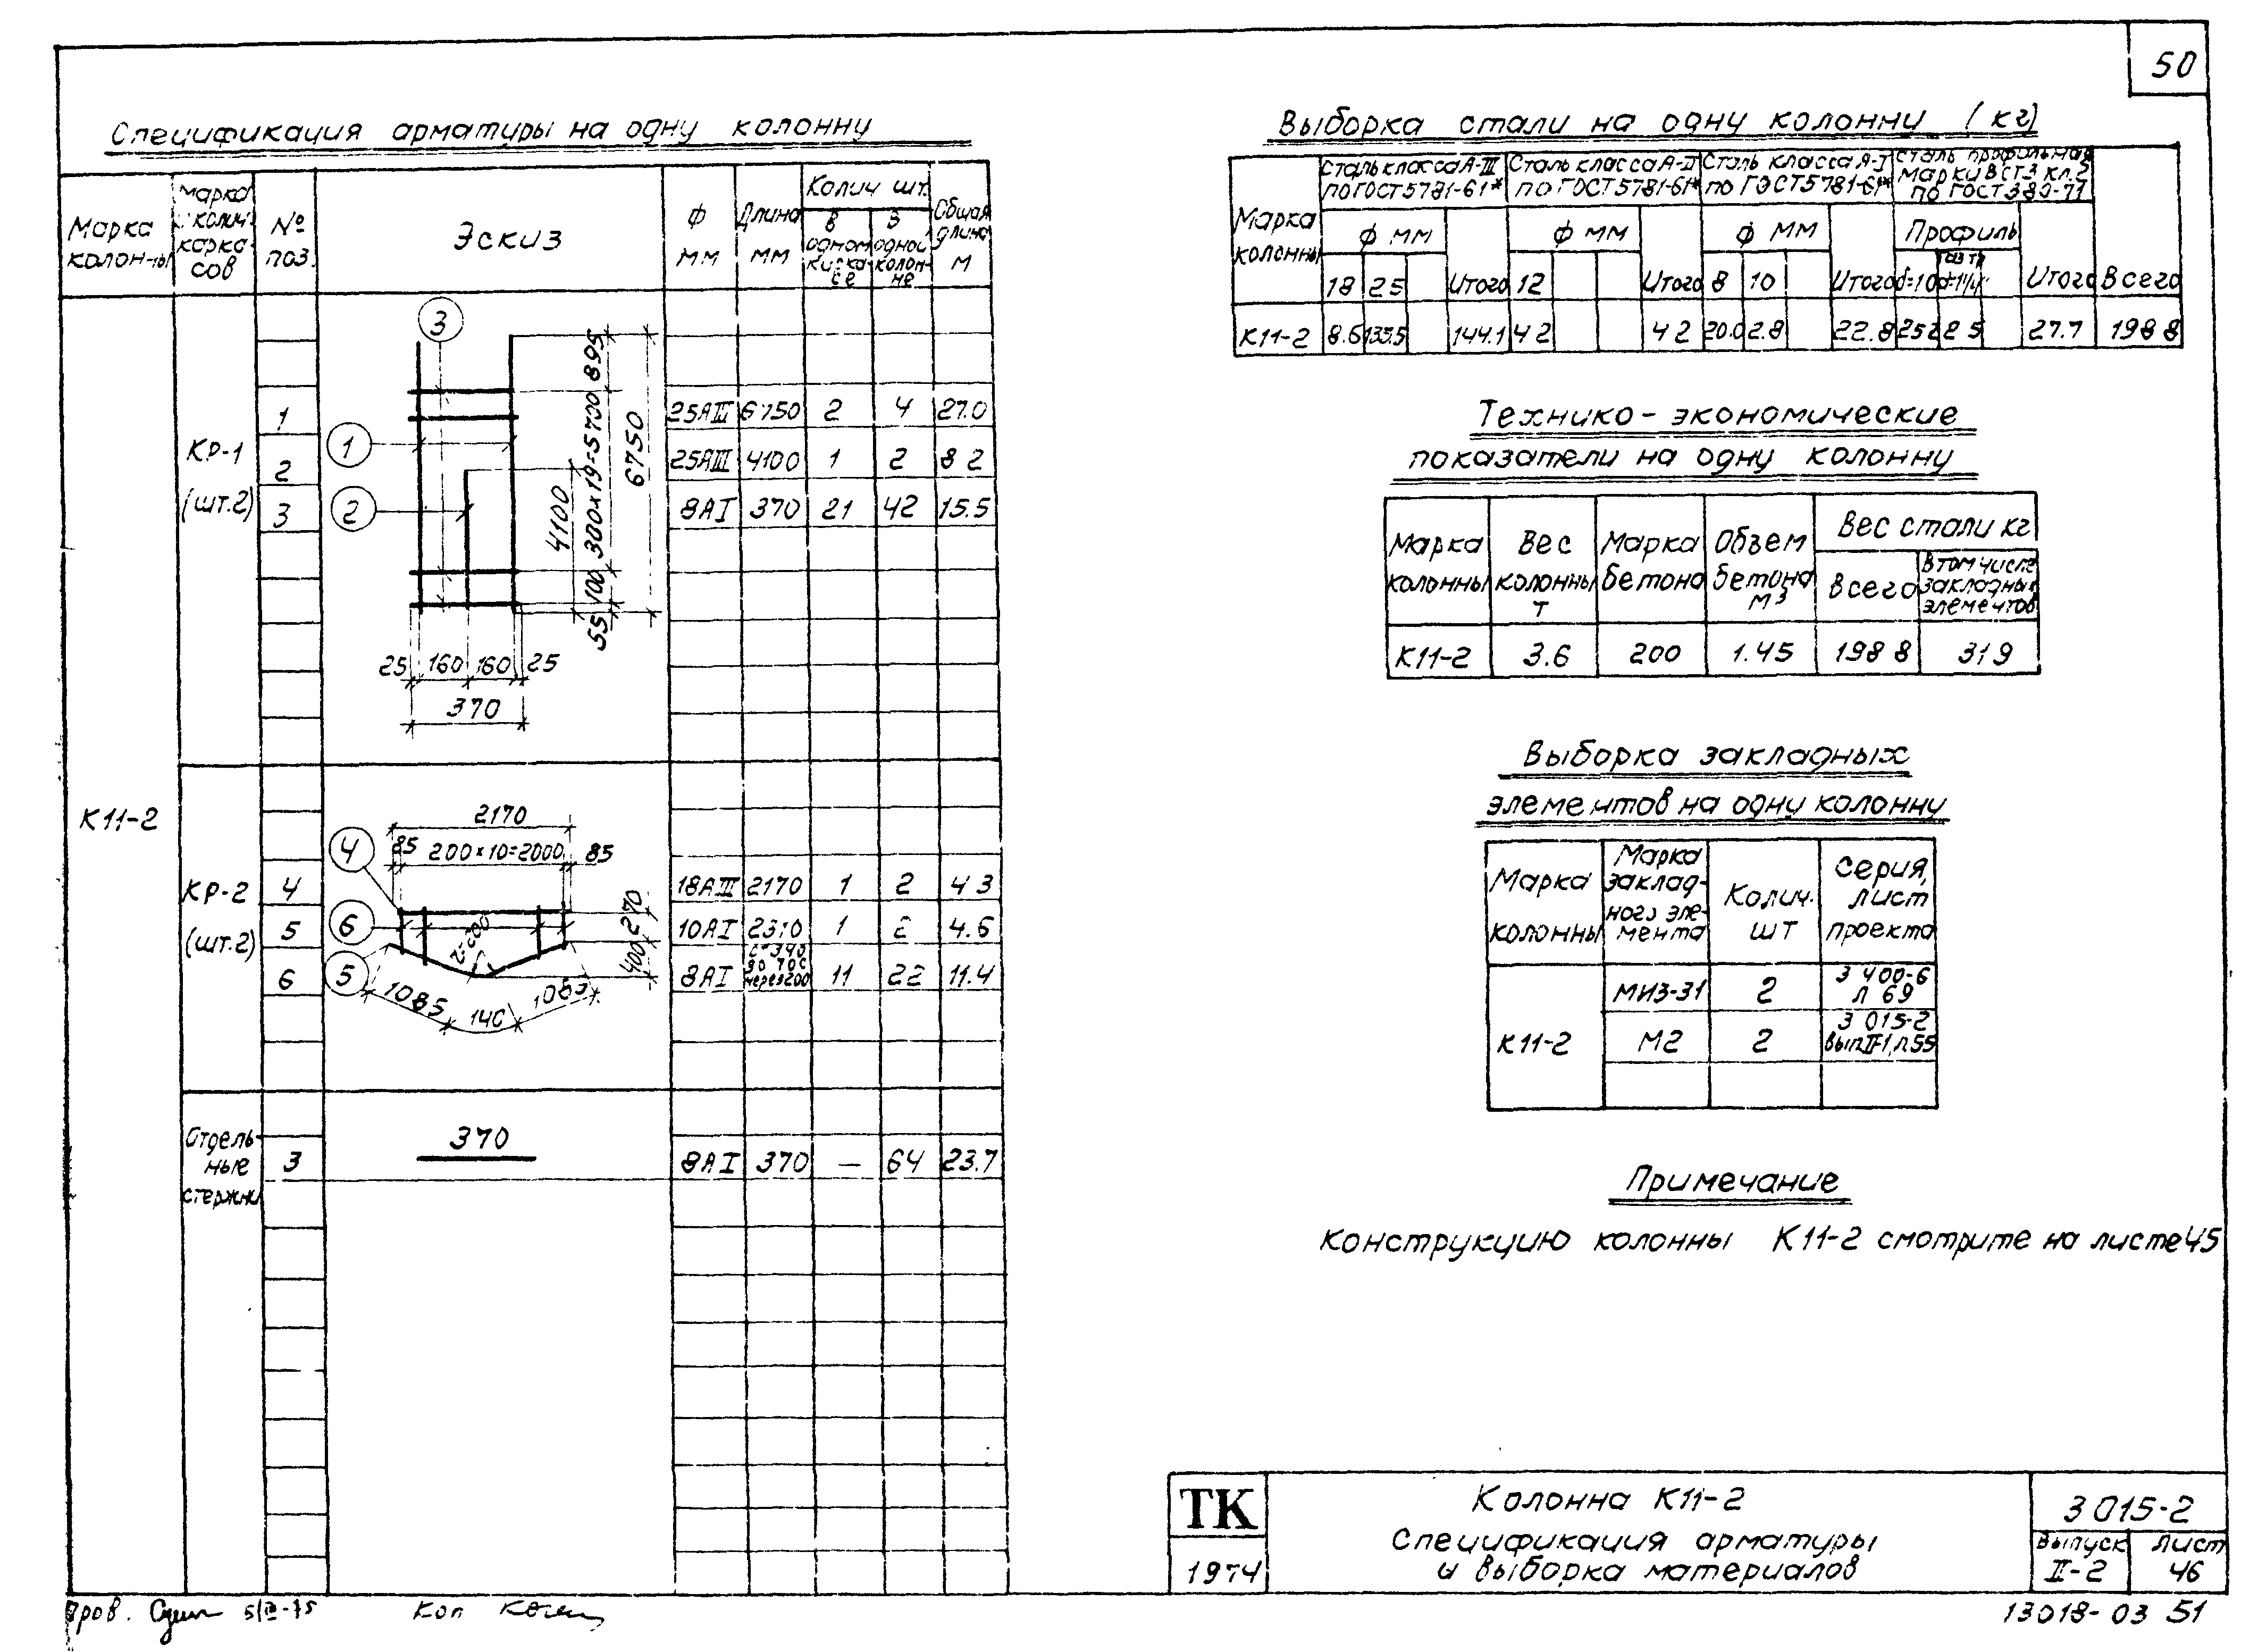 50
Спецификация арматуры на одну колонну
Марка колонны
Марка и колич. каркасов
№ поз.
Эскиз
Ф мм
Длина мм
Колич шт.
в одном каркасе
в одной колонне
Общая длина м
К11-2
КР-1 (шт.2)
1 25АIII 6750 2 4 27.0
2 25АIII 4100 1 2 8 2
3 8АI 370 21 42 15.5
3
1
2
895
300х19=5700
100
55
6750
4100
25 160 160 25
370
КР-2 (шт.2)
4 18АIII 2170 1 2 4 3
5 10АI 2310 1 2 4.6
6 8АI от 340 до 70 через 200 11 22 11.4
2170
85 200×10=2000 85
4
6
5
270
400
1085 140 1085
Отдельные стержни
3 370 8АI 370 — 64 23.7
Выборка стали на одну колонну (кг)
Марка колонны
Сталь класса А-III по ГОСТ 5781-61*
Сталь класса А-II по ГОСТ 5781-61*
Сталь класса А-I по ГОСТ 5781-61*
Сталь профильная марки ВСт3 кл.2 по ГОСТ 380-71
Ф мм Ф мм Ф мм Профиль
18 25 Итого 12 Итого 8 10 Итого δ=10 Итого Всего
К11-2 8.6 135.5 144.1 4 2 4 2 20.0 2.8 22.8 25 2 2 5 27.7 198 8
Технико-экономические
показатели на одну колонну
Марка колонны
Вес колонны т
Марка бетона
Объем бетона м³
Вес стали кг
всего
В том числе закладных элементов
К11-2 3.6 200 1.45 198 8 31 9
Выборка закладных
элементов на одну колонну
Марка колонны
Марка закладного элемента
Колич. шт
Серия, лист проекта
К11-2
МИ3-31 2 3 400-6 л 69
М2 2 3 015-2 вып II-1, л 55
Примечание
Конструкцию колонны К11-2 смотрите на листе 45
ТК
1974
Колонна К11-2
Спецификация арматуры
и выборка материалов
3 015-2
Выпуск II-2
Лист 46
Пров.
Коп
13018-03 51